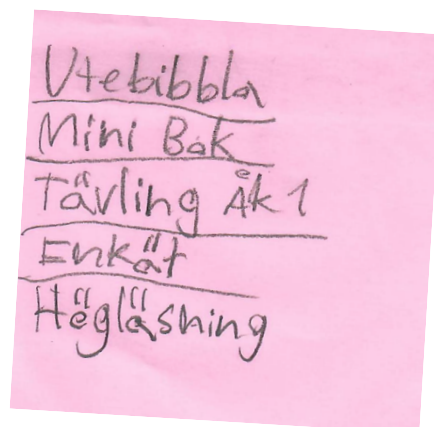 Utebibbla
Mini Bok
Tävling Åk 1
Enkät
Högläsning